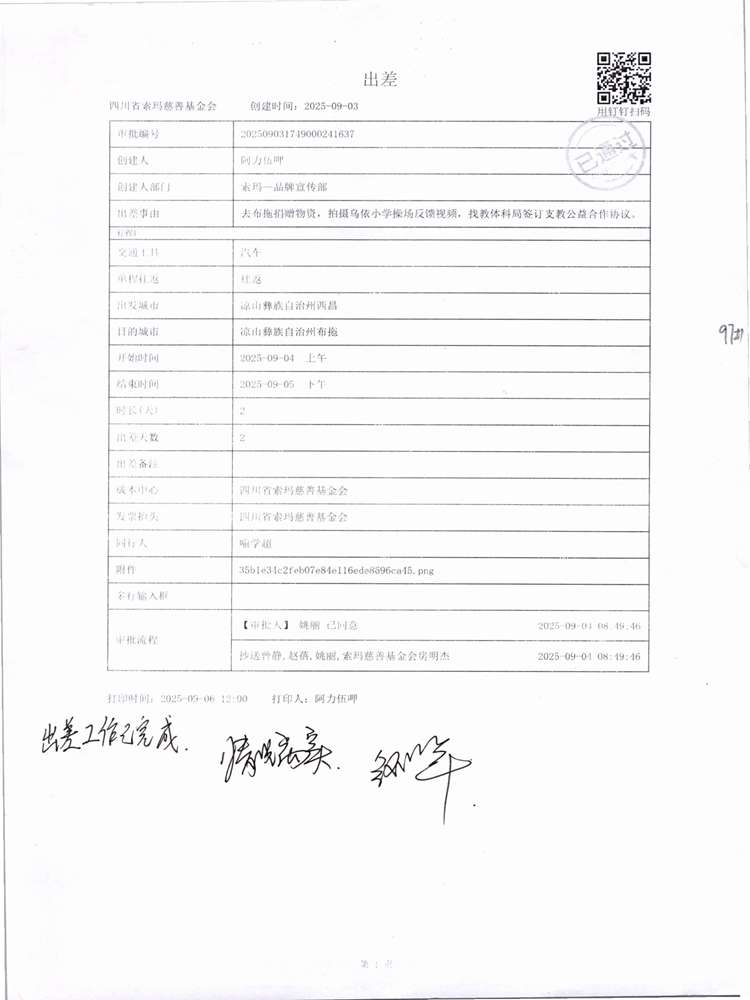 出差
四川省索玛慈善基金会 创建时间：2025-09-03
用钉钉扫码
已通过
审批编号 202509031749000241637
创建人 阿力伍呷
创建人部门 索玛—品牌宣传部
出差事由 去布拖捐赠物资，拍摄乌依小学操场反馈视频，找教体科局签订支教公益合作协议。
行程1
交通工具 汽车
单程往返 往返
出发城市 凉山彝族自治州西昌
目的城市 凉山彝族自治州布拖
开始时间 2025-09-04 上午
结束时间 2025-09-05 下午
时长(天) 2
出差天数 2
出差备注
成本中心 四川省索玛慈善基金会
发票抬头 四川省索玛慈善基金会
同行人 喻学超
附件 35b1e34c2feb07e84e116ede8596ca45.png
多行输入框
审批流程 【审批人】 姚丽 已同意 2025-09-04 08:49:46
抄送曾静,赵蓓,姚丽,索玛慈善基金会房明杰 2025-09-04 08:49:46
打印时间：2025-09-06 12:00 打印人：阿力伍呷
出差工作已完成.
情况属实.
第 1 页